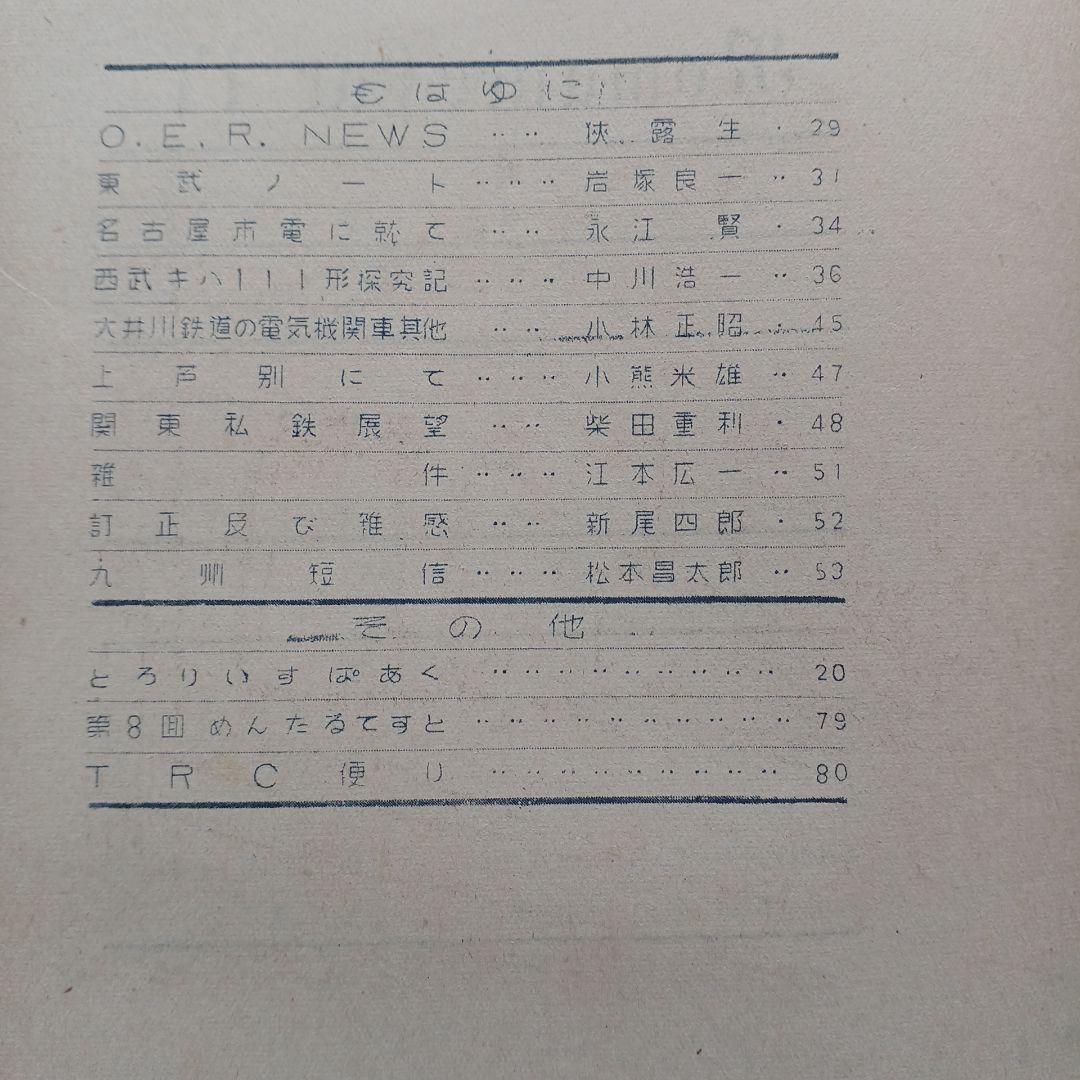 もはゆに
O.E.R. NEWS ‥‥ 狹露生 · 29
東武ノート ‥‥‥ 岩塚良一 ‥ 31
名古屋市電に就て ‥‥ 永江賢 · 34
西武キハ111形探究記 ‥‥‥ 中川浩一 ‥ 36
大井川鉄道の電気機関車其他 ‥‥ 小林正昭 45
上芦別にて ‥‥‥ 小熊米雄 ‥ 47
関東私鉄展望 ‥‥ 柴田重利 · 48
雑件 ‥‥‥ 江本広一 ‥ 51
訂正及び雑感 ‥‥ 新尾四郎 · 52
九州短信 ‥‥‥ 松本昌太郎 ‥ 53
その他
とろりいすぱあく ‥‥‥‥‥‥‥‥‥ 20
第8回めんたるてすと ‥‥‥‥‥‥‥‥‥‥ 79
TRC便り ‥‥‥‥‥‥‥‥‥ 80